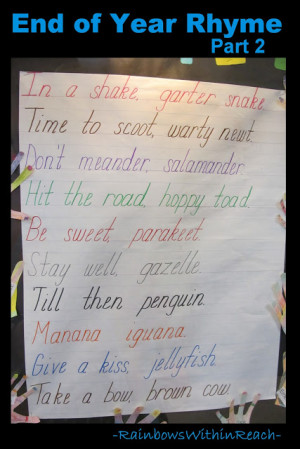 End of Year Rhyme
Part 2
In a shake, garter snake.
Time to scoot, warty newt.
Don't meander, salamander
Hit the road, hoppy toad.
Be sweet, parakeet.
Stay well, gazelle.
Till then penguin.
Manana iguana.
Give a kiss, jellyfish.
Take a bow, brown cow.
-RainbowsWithinReach-